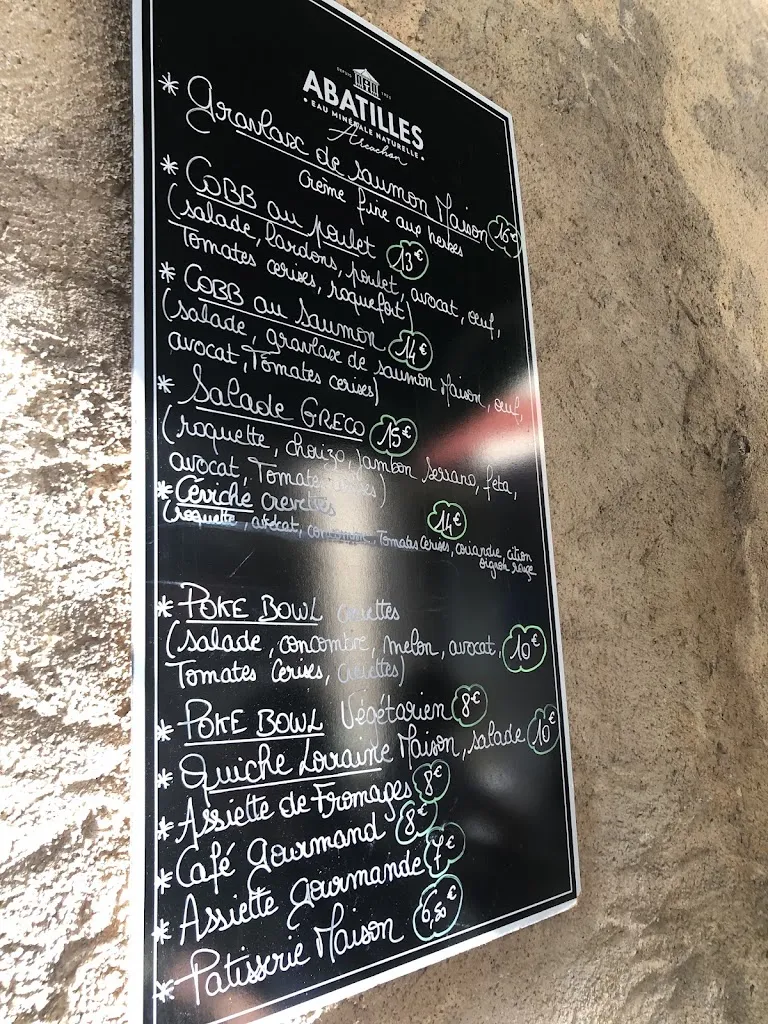 DEPUIS 1925
ABATILLES
• EAU MINÉRALE NATURELLE •
Arcachon
* Gravlax de saumon Maison 16€
crème fine aux herbes
* COBB au poulet 13€
(salade, lardons, poulet, avocat, œuf,
Tomates cerises, roquefort)
* COBB au Saumon 14€
(salade, gravlax de saumon Maison, œuf,
avocat, Tomates cerises)
* Salade GRECO 15€
(roquette, chorizo, Jambon Serrano, feta,
avocat, Tomates cerises)
* Céviche crevettes 14€
(roquette, avocat, concombre, Tomates Cerises, coriandre, citron
oignon rouge
* POKE BOWL crevettes
(salade, concombre, melon, avocat, 10€
Tomates Cerises, crevettes)
* POKE BOWL Végétarien 8€
* Quiche Lorraine Maison, salade 10€
* Assiette de Fromages 8€
* Café gourmand 8€
* Assiette gourmande 7€
* Patisserie Maison 6,50€